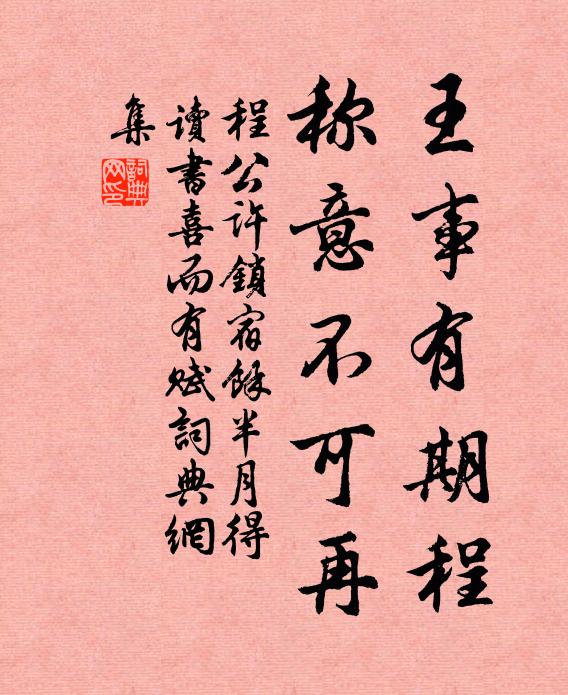 王事有期程
称意不可再
程公许鎖宿餘半月得
讀書喜而有赋詞典網
集
詞典
网印